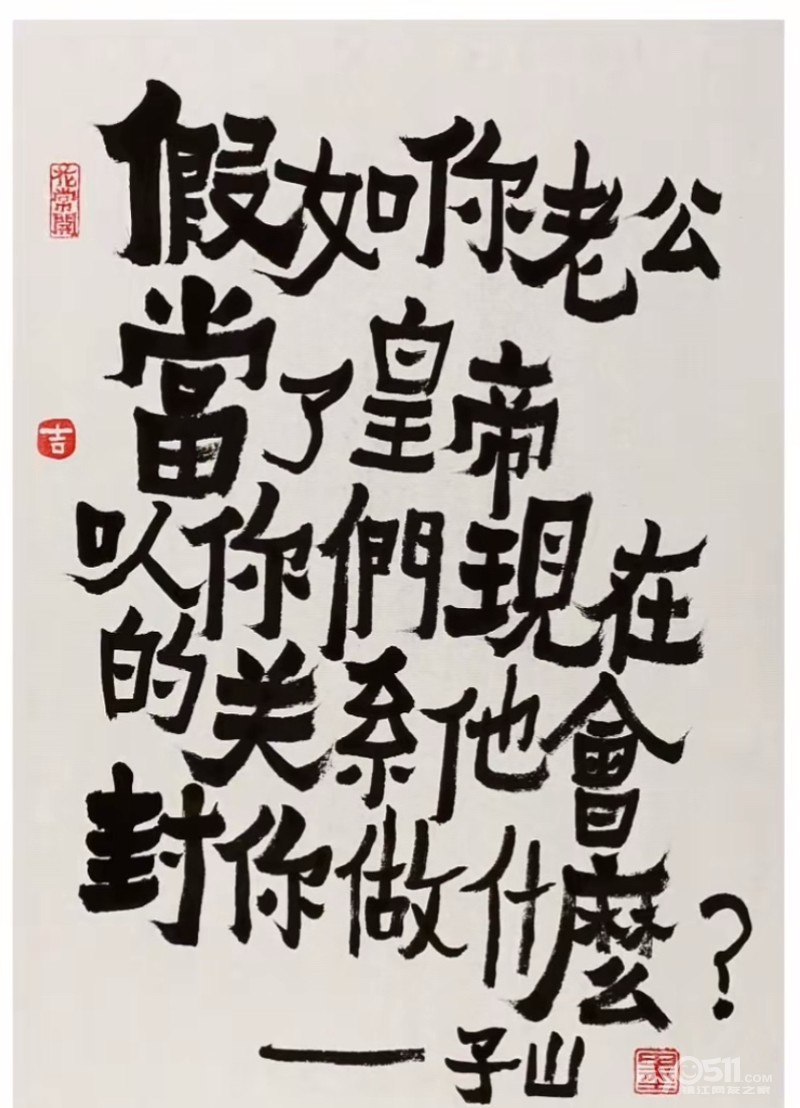 假如你老公
當了皇帝
以你們現在
的关系他會
封你做什麼？
——子山
花常開
吉
0511.COM